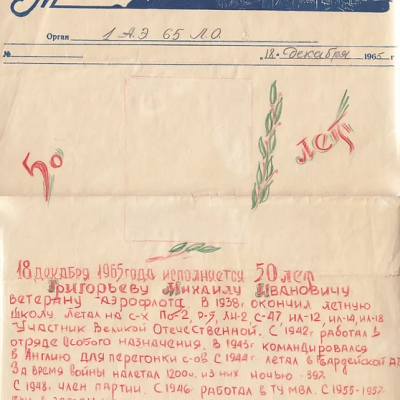 Орган 1 АЭ 65 Л.О.
№ "18" декабря 1965 г
50 лет
18 декабря 1965 года исполняется 50 лет
Григорьеву Михаилу Ивановичу
ветерану Аэрофлота. В 1938г окончил летную
школу летал на с-х По-2, Р-5, Ли-2, С-47, ИЛ-12, ИЛ-14, ИЛ-18
Участник Великой Отечественной. С 1942г работал в
отряде Особого назначения. В 1943г командировался
в Англию для перегонки с-ов С 1944г летал в Гвардейской
За время войны налетал 1200ч. из них ночью - 397.
С 1948г. член партии. С 1946г работал в ТУ МВЛ. С 1955-1957г